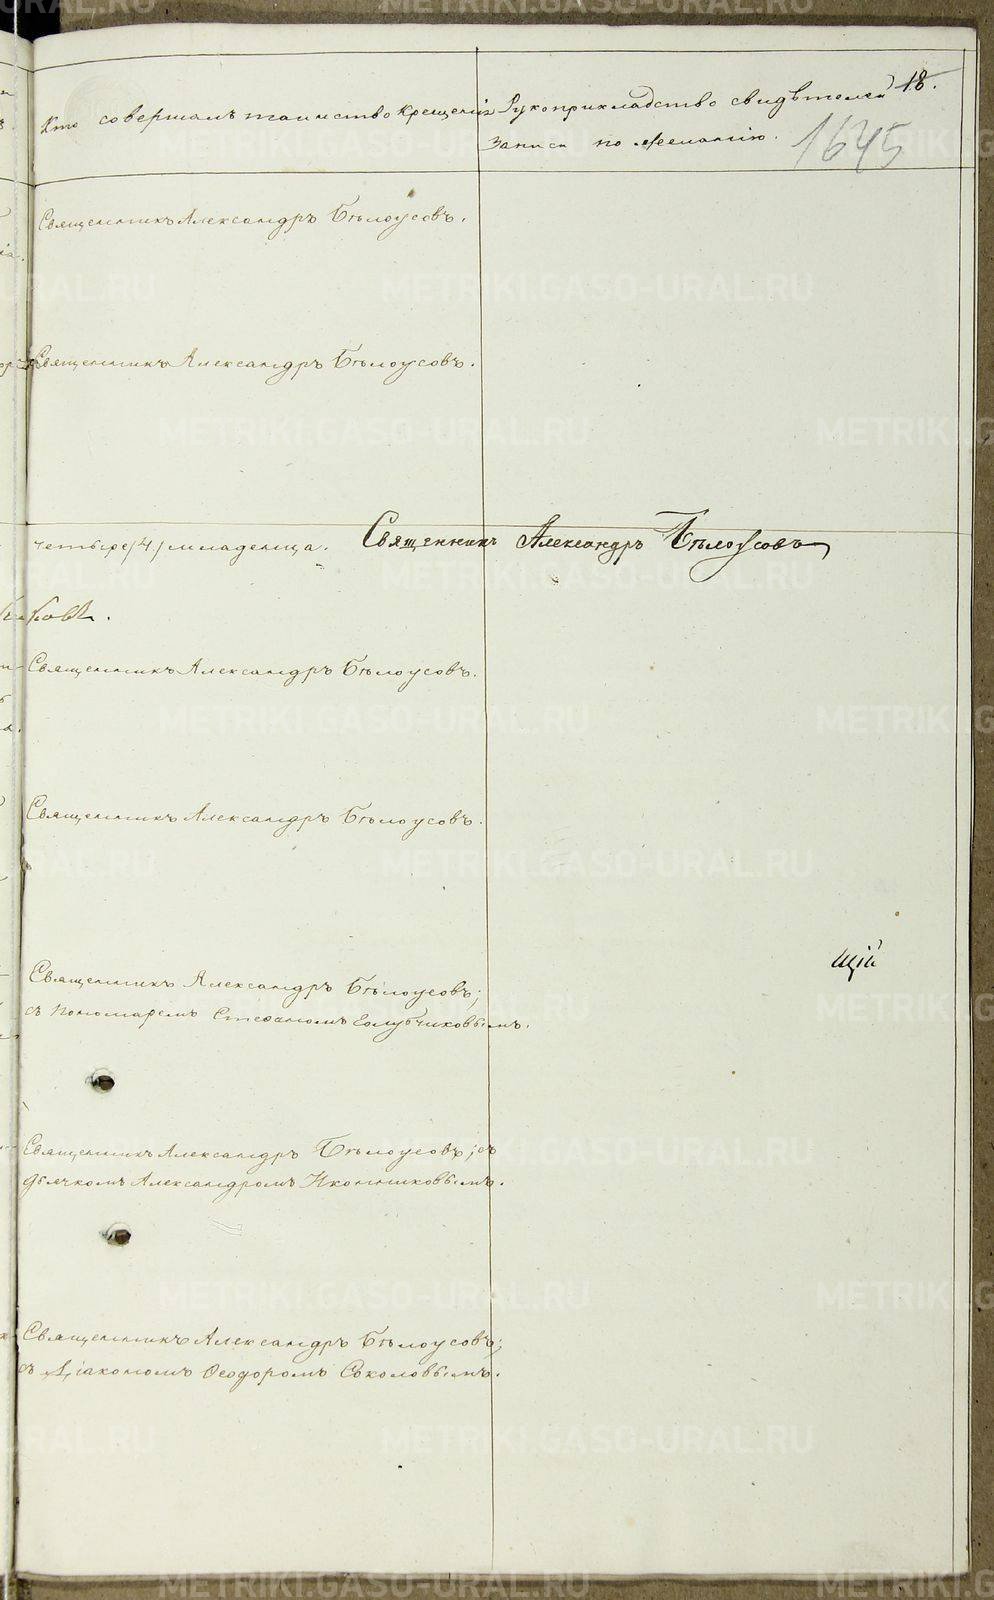 Кто совершалъ таинство крещенія
Рукоприкладство свидѣтелей
записи по желанію.
18.
1645
Священникъ Александръ Бѣлоусовъ.
Священникъ Александръ Бѣлоусовъ.
четыре /4./ младенца. Священникъ Александръ Бѣлоусовъ
Священникъ Александръ Бѣлоусовъ.
Священникъ Александръ Бѣлоусовъ.
щій
Священникъ Александръ Бѣлоусовъ;
съ пономаремъ Стефаномъ Голубчиковымъ.
Священникъ Александръ Бѣлоусовъ; съ
дьячкомъ Александромъ Иконниковымъ.
Священникъ Александръ Бѣлоусовъ;
съ Діакономъ Ѳеодоромъ Соколовымъ.
METRIKI.GASO-URAL.RU